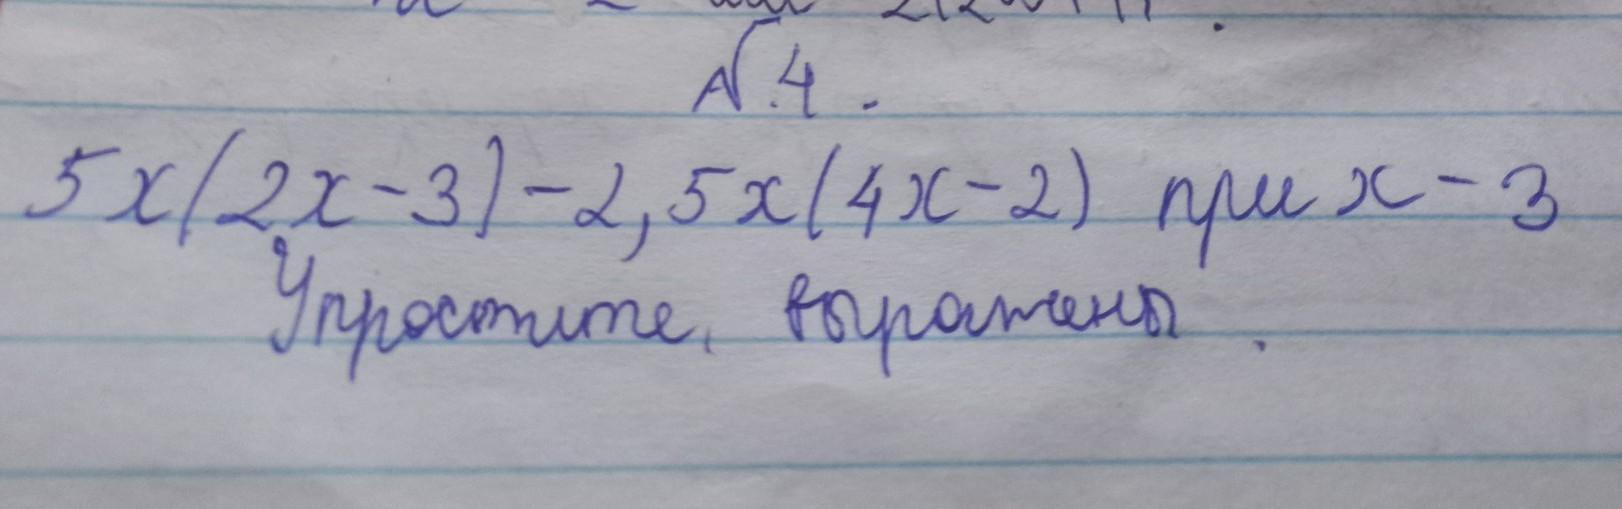 № 4.
5x(2x-3)-2,5x(4x-2) при x - 3
Упростите, выражены.